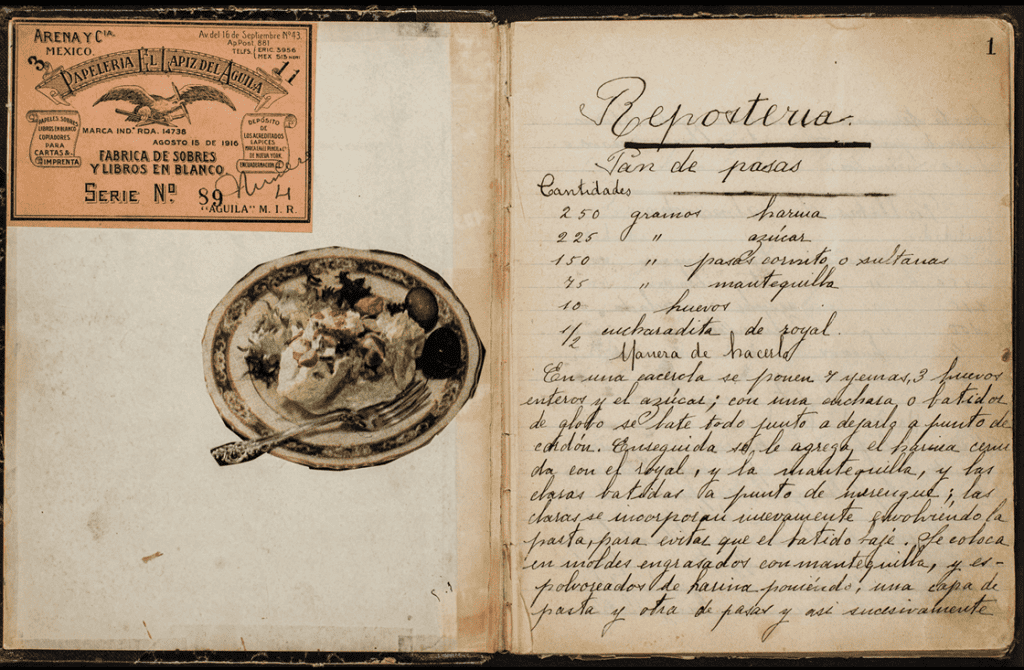 ARENA Y CIA.
MEXICO.
Av. del 16 de Septiembre Nº 43.
Ap. Post. 881
TELFS. ERIC. 3956
MEX 515 NERI
3
11
PAPELERIA EL LAPIZ DEL AGUILA
PAPELES, SOBRES
LIBROS EN BLANCO
COPIADORES
PARA
CARTAS &.
IMPRENTA
MARCA IND. RDA. 14738
AGOSTO 15 DE 1916
DEPÓSITO
DE
LOS ACREDITADOS
LAPICES
DE NUEVA YORK.
ENCUADERNACION
FABRICA DE SOBRES
Y LIBROS EN BLANCO
SERIE Nº. 89
4
"AGUILA" M. I. R.
1
Reposteria.
Pan de pasas
Cantidades
250 gramos harina
225 " azúcar
150 " pasas corinto o sultanas
75 " mantequilla
10 huevos
1/2 cucharadita de royal.
Manera de hacerlo
En una cacerola se ponen 7 yemas, 3 huevos
enteros y el azúcar; con una cuchara o batidor
de globo se bate todo junto a dejarlo a punto de
cordón. Enseguida se le agrega el harina cerni
da con el royal, y la mantequilla, y las
claras batidas a punto de merengue; las
claras se incorporan nuevamente envolviendo la
pasta, para evitar que el batido baje. Se coloca
en moldes engrasados con mantequilla, y es-
polvoreados de harina poniendo, una capa de
pasta y otra de pasas y asi sucesivamente